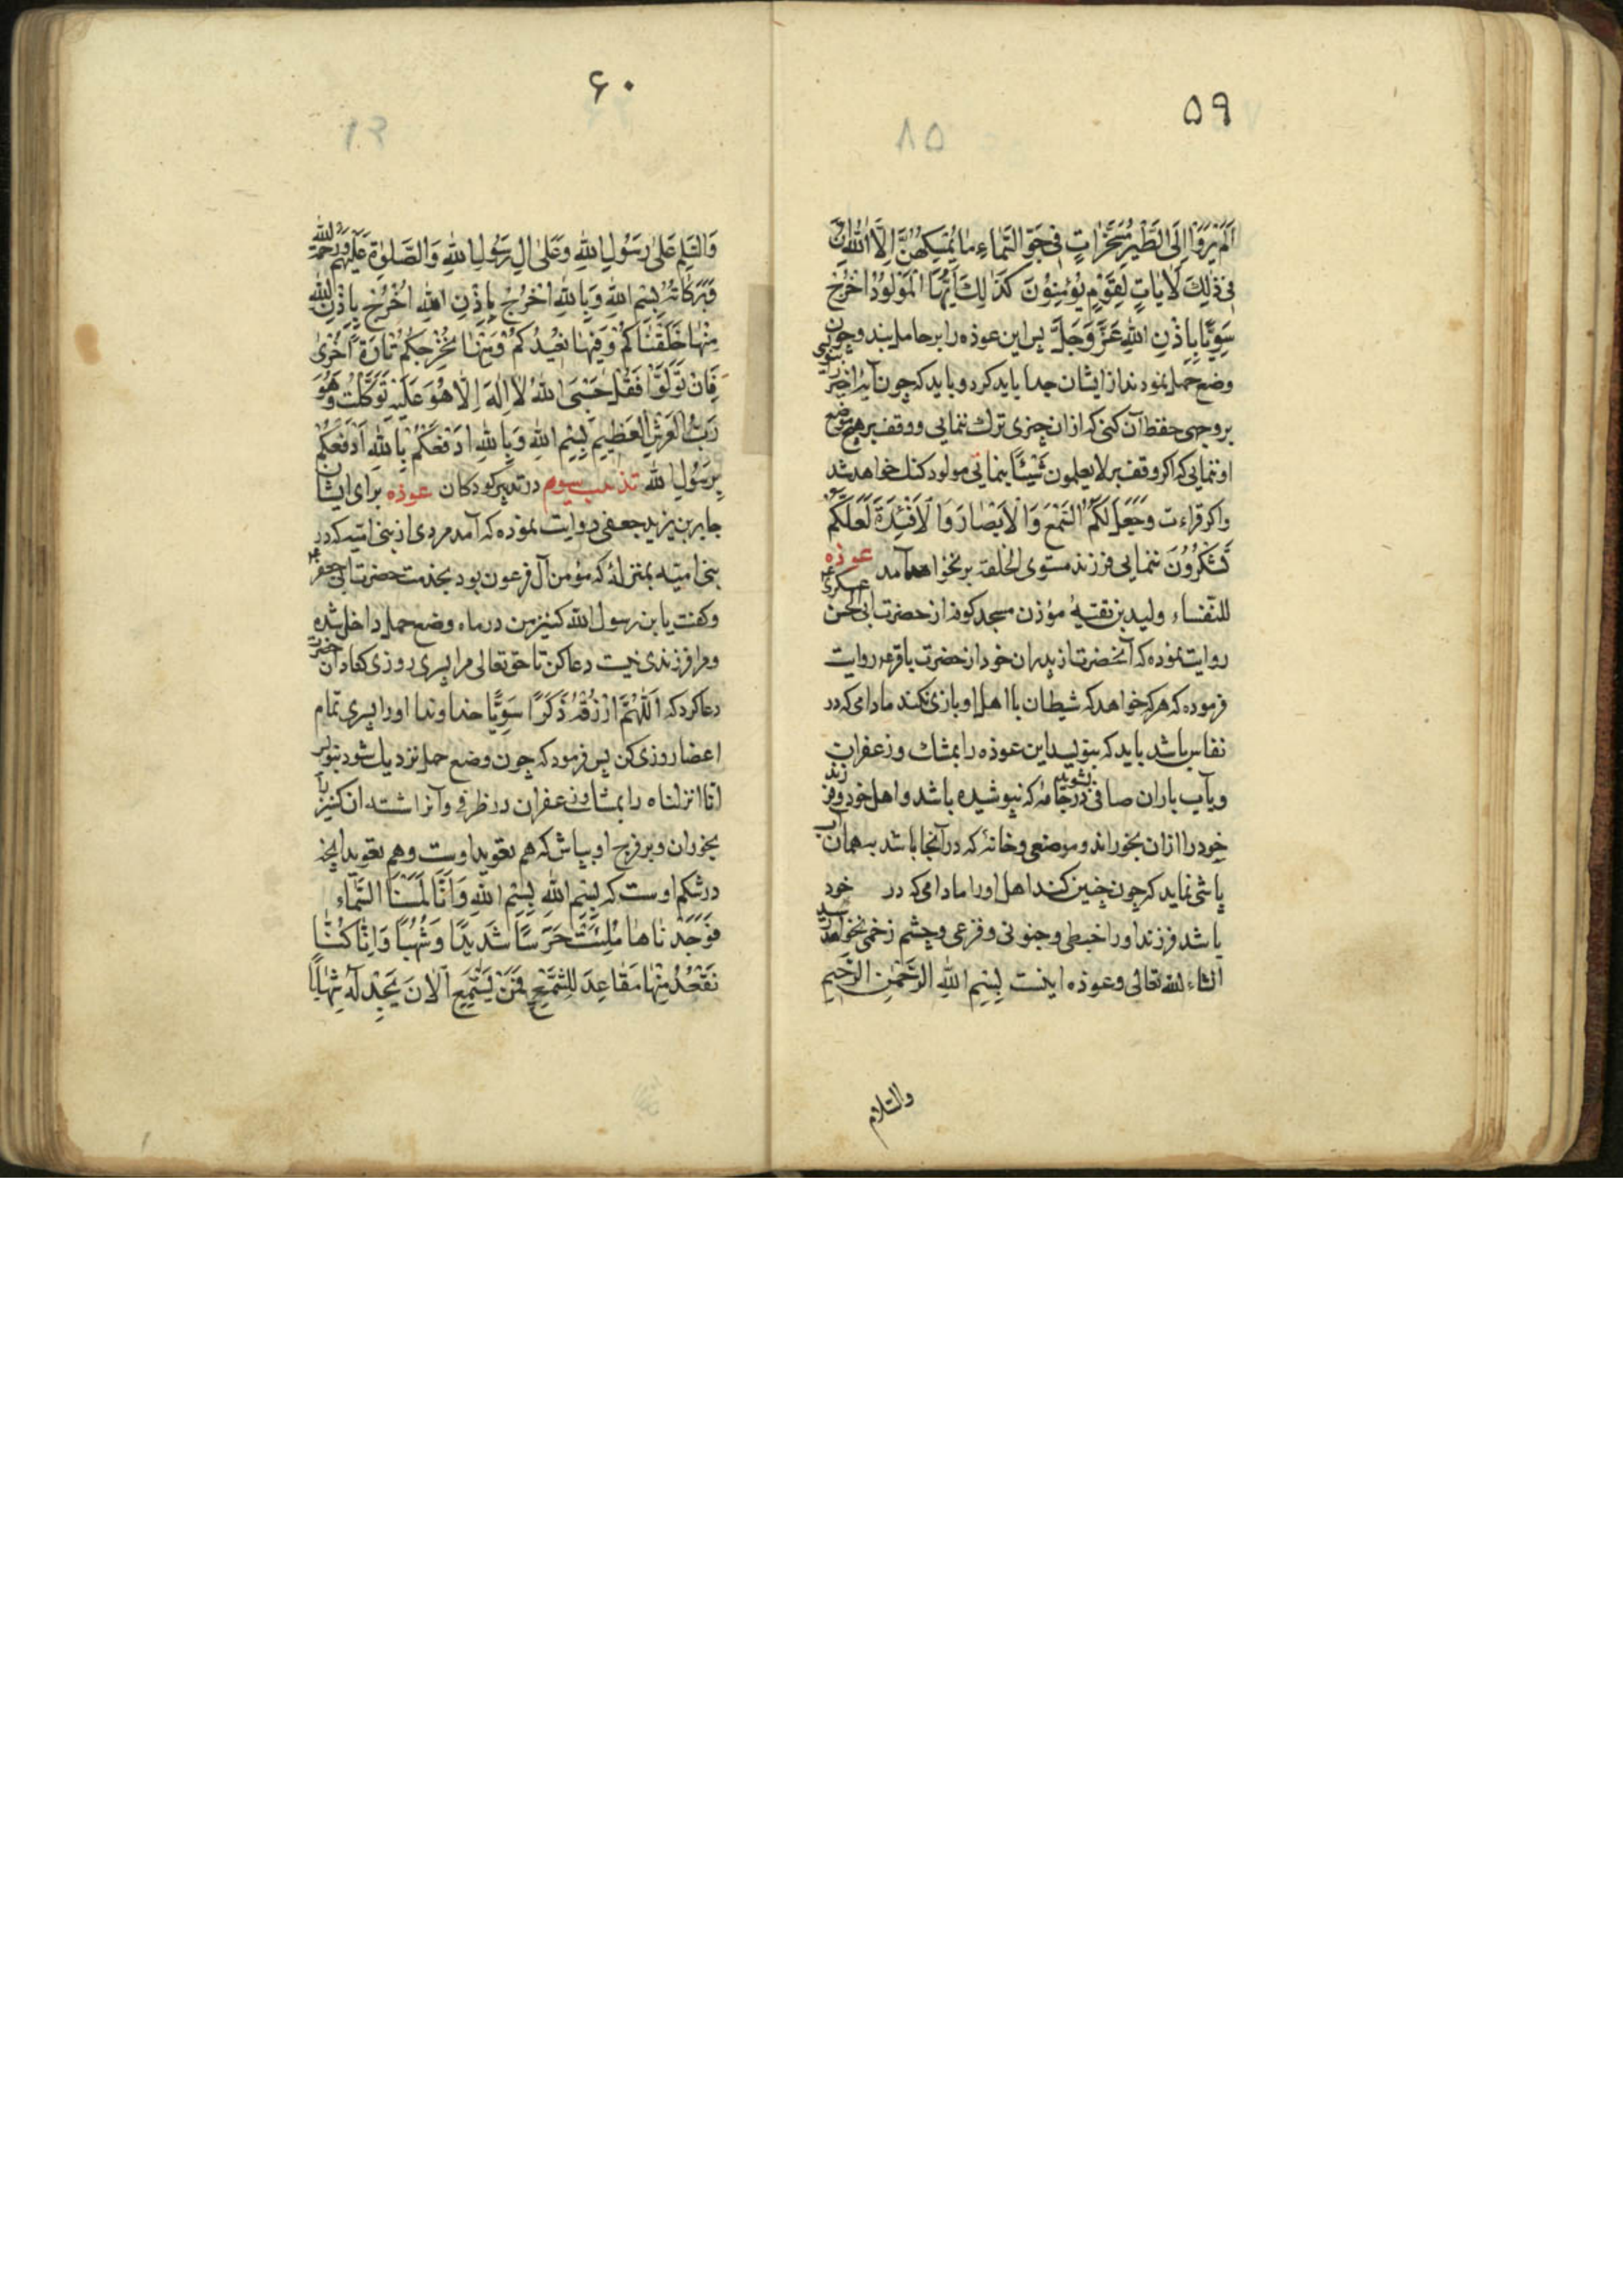 ۵۹
۸۵
اَلَمْ یَرَوْا اِلَی الطَّیْرِ مُسَخَّرٰاتٍ فی جَوِّ السَّمٰاءِ مٰا یُمْسِکُهُنَّ اِلَّا اللهُ اِنَّ
فی ذٰلِکَ لَاٰیاتٍ لِقَوْمٍ یُؤْمِنُوْنَ کَذٰلِکَ اَیُّهَا الْمَوْلُودُ اخْرُجْ
سَوِیًّا بِاِذْنِ اللهِ عَزَّ وَجَلَّ پس این عوذه را بر حامل بندد و چون
وضع حمل نمودند از ایشان جدا باید کرد و باید که چون آیهٔ اخیر را بنویسی
بر وجهی حفظ آن کنی که از ان چیزی ترک ننمایی و وقف بر هیچ موضع
او ننمایی که اکر وقف بر لا یعلمون شَیْئًا ینمائی مولود کنک خواهد شد
واکر قراءت وَجَعَلَ لَکُمُ السَّمْعَ وَالْاَبْصٰارَ وَالْاَفْئِدَةَ لَعَلَّکُمْ
تَشْکُرُوُنَ ننمایی فرزند مستوی الخلقه بر نخواهد آمد عوذه
للنّفساء ولید بن نقیه مؤذن مسجد کوفه از حضرت ابی الحسن عسکری
روایت نموده که آنحضرت از پدران خود از حضرت باقر ع روایت
فرموده که هرکه خواهد که شیطان با اهل او بازی نکند مادامی که در
نفاس باشد باید که بنویسد این عوذه را بمشک و زعفران
وبآب باران صافی بشوید در جامهٔ که نپوشیده باشد و اهل خود و فرزند
خود را ازان بخوراند و موضعی و خانهٔ که در آنجا باشد بهمان آب
پاشی نماید که چون چنین کند اهل او را مادامی که در خود
باشد و فرزند او را خبطی و جنونی و فزعی و چشم زخمی نخواهد رسید
انشاء لله تعالی و عوذه اینست بِسْمِ اللهِ الرَّحْمٰنِ الرَّحیمِ
والسّلام
۶۰
وَالسَّلٰمُ عَلیٰ رَسُولِ اللهِ وَعَلیٰ اٰلِ رَسُولِ اللهِ وَالصَّلوٰةُ عَلَیْهِمْ وَرَحْمَةُ اللهِ
وَبَرَکٰاتُهُ بِسْمِ اللهِ وَبِاللهِ اُخْرُجْ بِاِذْنِ اللهِ اُخْرُجْ بِاِذْنِ اللهِ
مِنْهٰا خَلَقْنٰاکُمْ وَفیهٰا نُعیْدُکُمْ وَمِنْهٰا نُخْرِجُکُمْ تٰارَةً اُخْریٰ
فَاِنْ تَوَلَّوْا فَقُلْ حَسْبِیَ اللهُ لٰا اِلٰهَ اِلّٰا هُوَ عَلَیْهِ تَوَکَّلْتُ وَهُوَ
رَبُّ الْعَرْشِ الْعَظیمِ بِسْمِ اللهِ وَبِاللهِ اَدْفَعُکُمْ بِاللهِ اَدْفَعُکُمْ
بِرَسُولِ اللهِ تذنیب سیوم در تدبیر کودکان عوذه برای ایشان
جابر بن یزید جعفی روایت نموده که آمد مردی از بنی امّیه که در
بنی امیّه بمنزلهٔ که مؤمن آل فرعون بود بخدمت حضرت ابی جعفر ع
وکفت یا بن رسول الله کنیز من در ماه وضع حمل داخل شده
ومرا فرزندی نیست دعا کن تا حق تعالی مرا پسری روزی کناد ان حضرت
دعا کرد که اَللّٰهُمَّ ارْزُقْهُ ذَکَرًا سَوِیًّا خداوندا او را پسری تمام
اعضا روزی کن پس فرمود که چون وضع حمل نزدیک شود بنویس
انا انزلناه را بمشک و زعفران در ظرفی و آنرا شسته ان کنیز را
بخوران و بر فرج او بپاش که هم تعوید اوست وهم تعوید آنچه
در شکم اوست که بِسْمِ اللهِ بِسْمِ اللهِ وَاَنّٰا لَمَسْنَا السَّمٰاءَ
فَوَجَدْنٰاهٰا مُلِئَتْ حَرَسًا شَدیدًا وَشُهُبًا وَاِنّٰا کُنّٰا
نَقْعُدُ مِنْهٰا مَقٰاعِدَ لِلسَّمْعِ فَمَنْ یَسْتَمِعِ الْاٰنَ یَجِدْ لَهُ شِهٰابًا